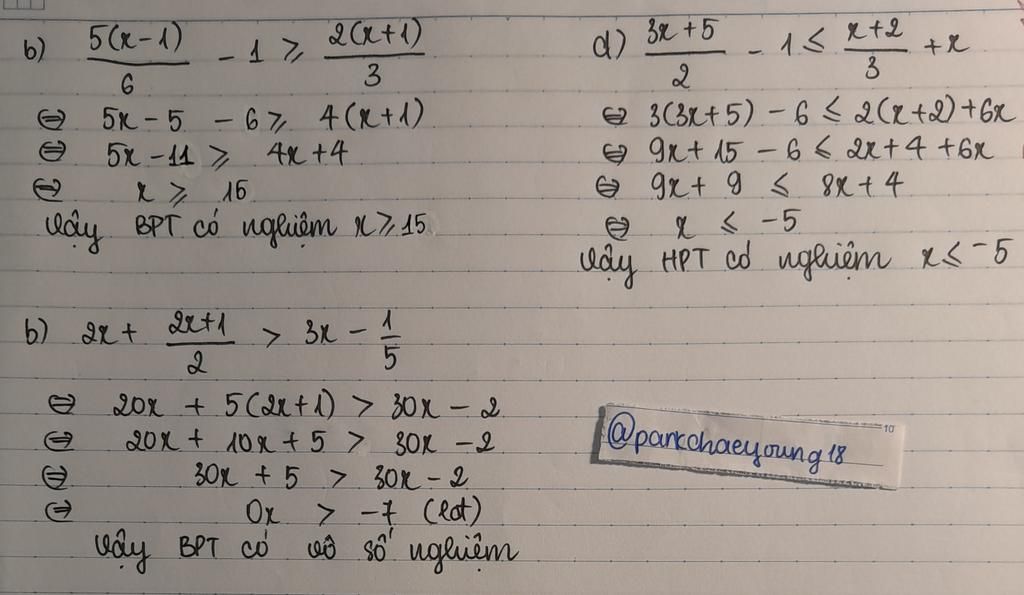 b) 5(x-1)/6 - 1 ⩾ 2(x+1)/3
⇔ 5x - 5 - 6 ⩾ 4(x+1)
⇔ 5x - 11 ⩾ 4x + 4
⇔ x ⩾ 15
Vậy BPT có nghiệm x ⩾ 15
d) 3x+5/2 - 1 ≤ x+2/3 + x
⇔ 3(3x+5) - 6 ≤ 2(x+2) + 6x
⇔ 9x + 15 - 6 ≤ 2x + 4 + 6x
⇔ 9x + 9 ≤ 8x + 4
⇔ x ≤ -5
Vậy HPT có nghiệm x ≤ -5
b) 2x + 2x+1/2 > 3x - 1/5
⇔ 20x + 5(2x+1) > 30x - 2
⇔ 20x + 10x + 5 > 30x - 2
⇔ 30x + 5 > 30x - 2
⇔ 0x > -7 (lđt)
Vậy BPT có vô số nghiệm
@parkchaeyoung18
10